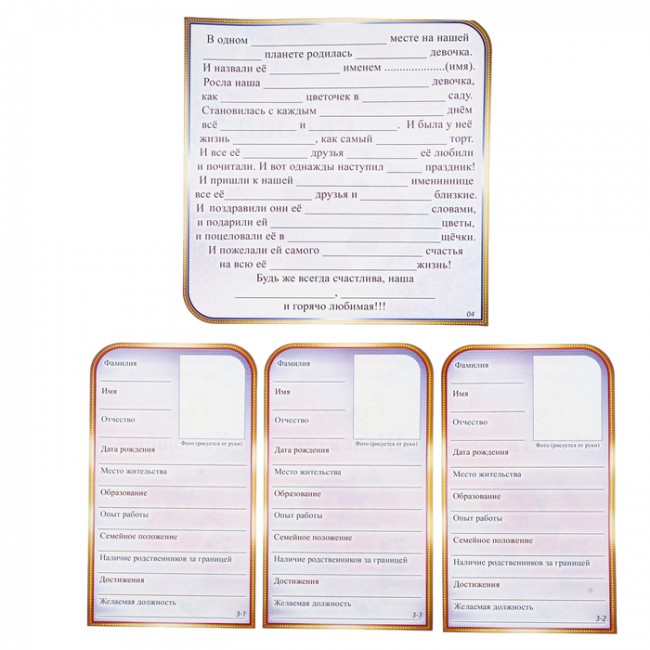 В одном ____________ месте на нашей
____________ планете родилась ____________ девочка.
И назвали её ____________ именем ....................(имя).
Росла наша ____________ девочка,
как ____________ цветочек в ____________ саду.
Становилась с каждым ____________ днём
всё ____________ и ____________. И была у неё
жизнь ____________, как самый ____________ торт.
И все её ____________ друзья ____________ её любили
и почитали. И вот однажды наступил ______ праздник!
И пришли к нашей ____________ имениннице
все её ____________ друзья и ____________ близкие.
И поздравили они её ____________ словами,
и подарили ей ____________ цветы,
и поцеловали её в ____________ щёчки.
И пожелали ей самого ____________ счастья
на всю её ____________ жизнь!
Будь же всегда счастлива, наша
____________, ____________
и горячо любимая!!!
04
Фамилия
Имя
Отчество
Фото (рисуется от руки)
Дата рождения
Место жительства
Образование
Опыт работы
Семейное положение
Наличие родственников за границей
Достижения
Желаемая должность
3-1
Фамилия
Имя
Отчество
Фото (рисуется от руки)
Дата рождения
Место жительства
Образование
Опыт работы
Семейное положение
Наличие родственников за границей
Достижения
Желаемая должность
3-3
Фамилия
Имя
Отчество
Фото (рисуется от руки)
Дата рождения
Место жительства
Образование
Опыт работы
Семейное положение
Наличие родственников за границей
Достижения
Желаемая должность
3-2